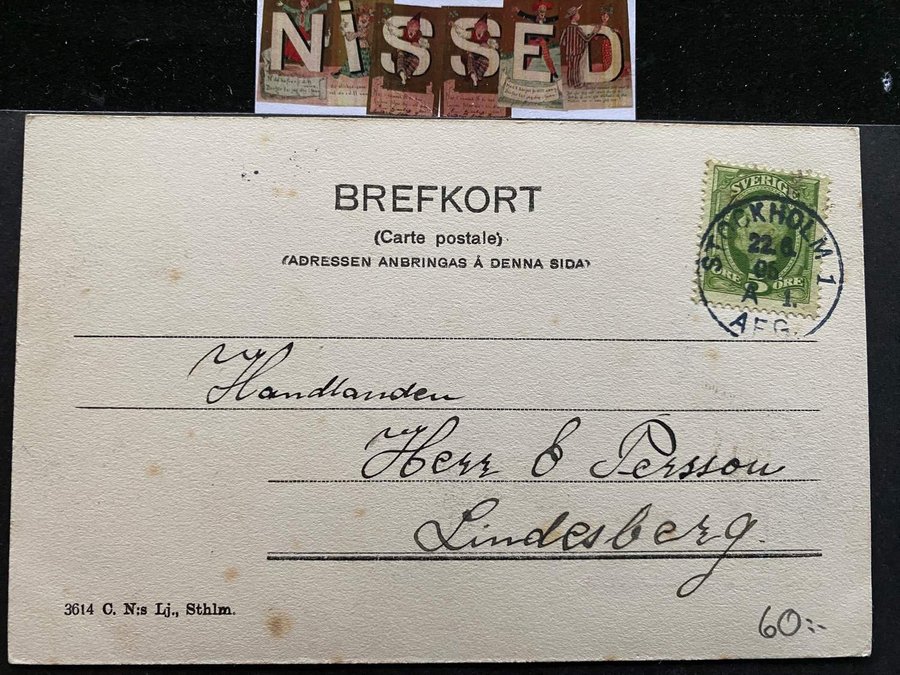 NiSSED
BREFKORT
(Carte postale)
(ADRESSEN ANBRINGAS Å DENNA SIDA)
SVERIGE
STOCKHOLM 1
22.6.
06
A 1.
AFG.
ÖRE 5 ÖRE
Handlanden
Herr E Persson
Lindesberg.
3614 C. N:s Lj., Sthlm.
60:-